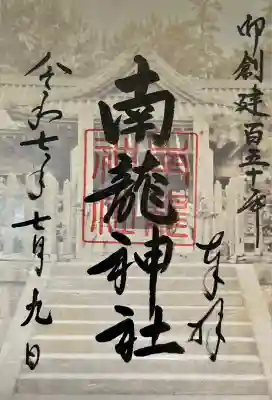 御創建百五十年
奉拝
南龍神社
令和七年七月九日
南龍神社